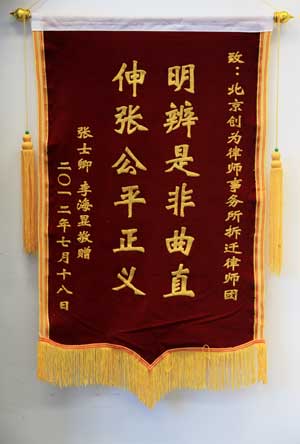 致：北京创为律师事务所拆迁律师团
明辨是非曲直
伸张公平正义
张士卿 李海星敬赠
二〇一二年七月十八日